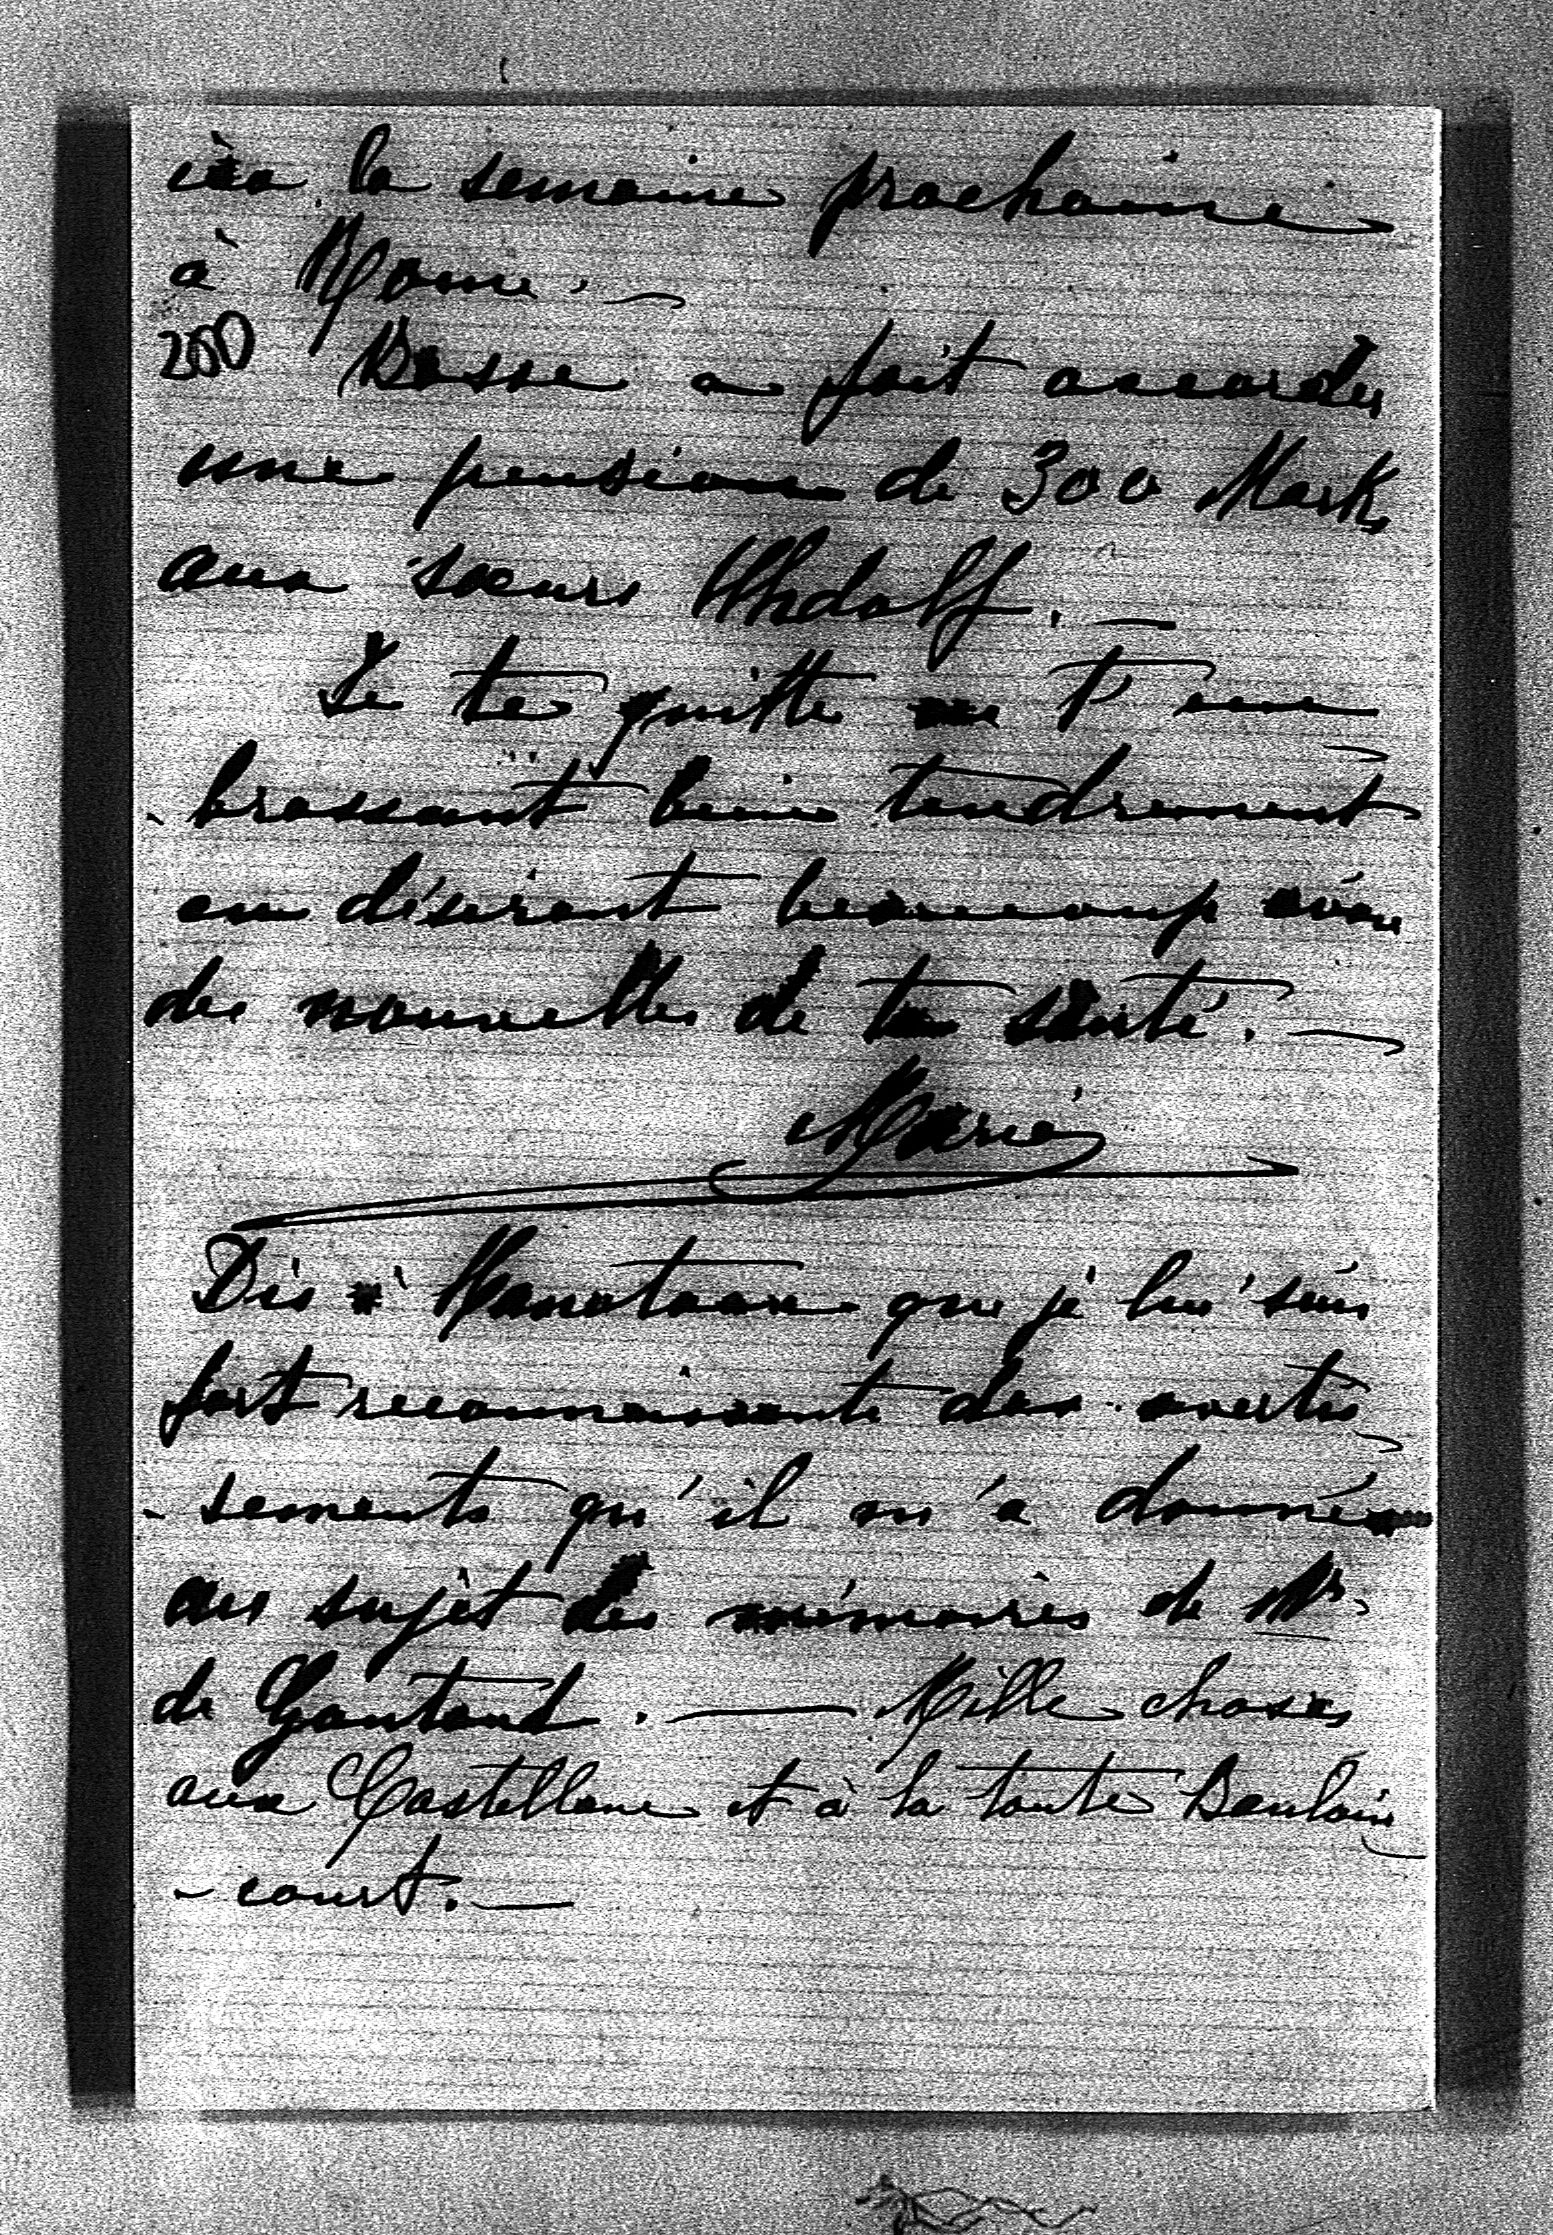 ira la semaine prochaine
à Rome. —
200 Bosse a fait accorder
une pension de 300 Marks
aux sœurs Uhdolf. —
Je te quitte en t'em-
-brassant bien tendrement
en désirant beaucoup avoir
des nouvelles de ta santé. —
Marie
Dis à Hanotaux que je lui suis
fort reconnaissante des avertis-
-sements qu'il m'a donnés
au sujet des mémoires de Mr.
de Gontaud. — Mille choses
aux Castellane et à la toute Beaulain-
-court. —